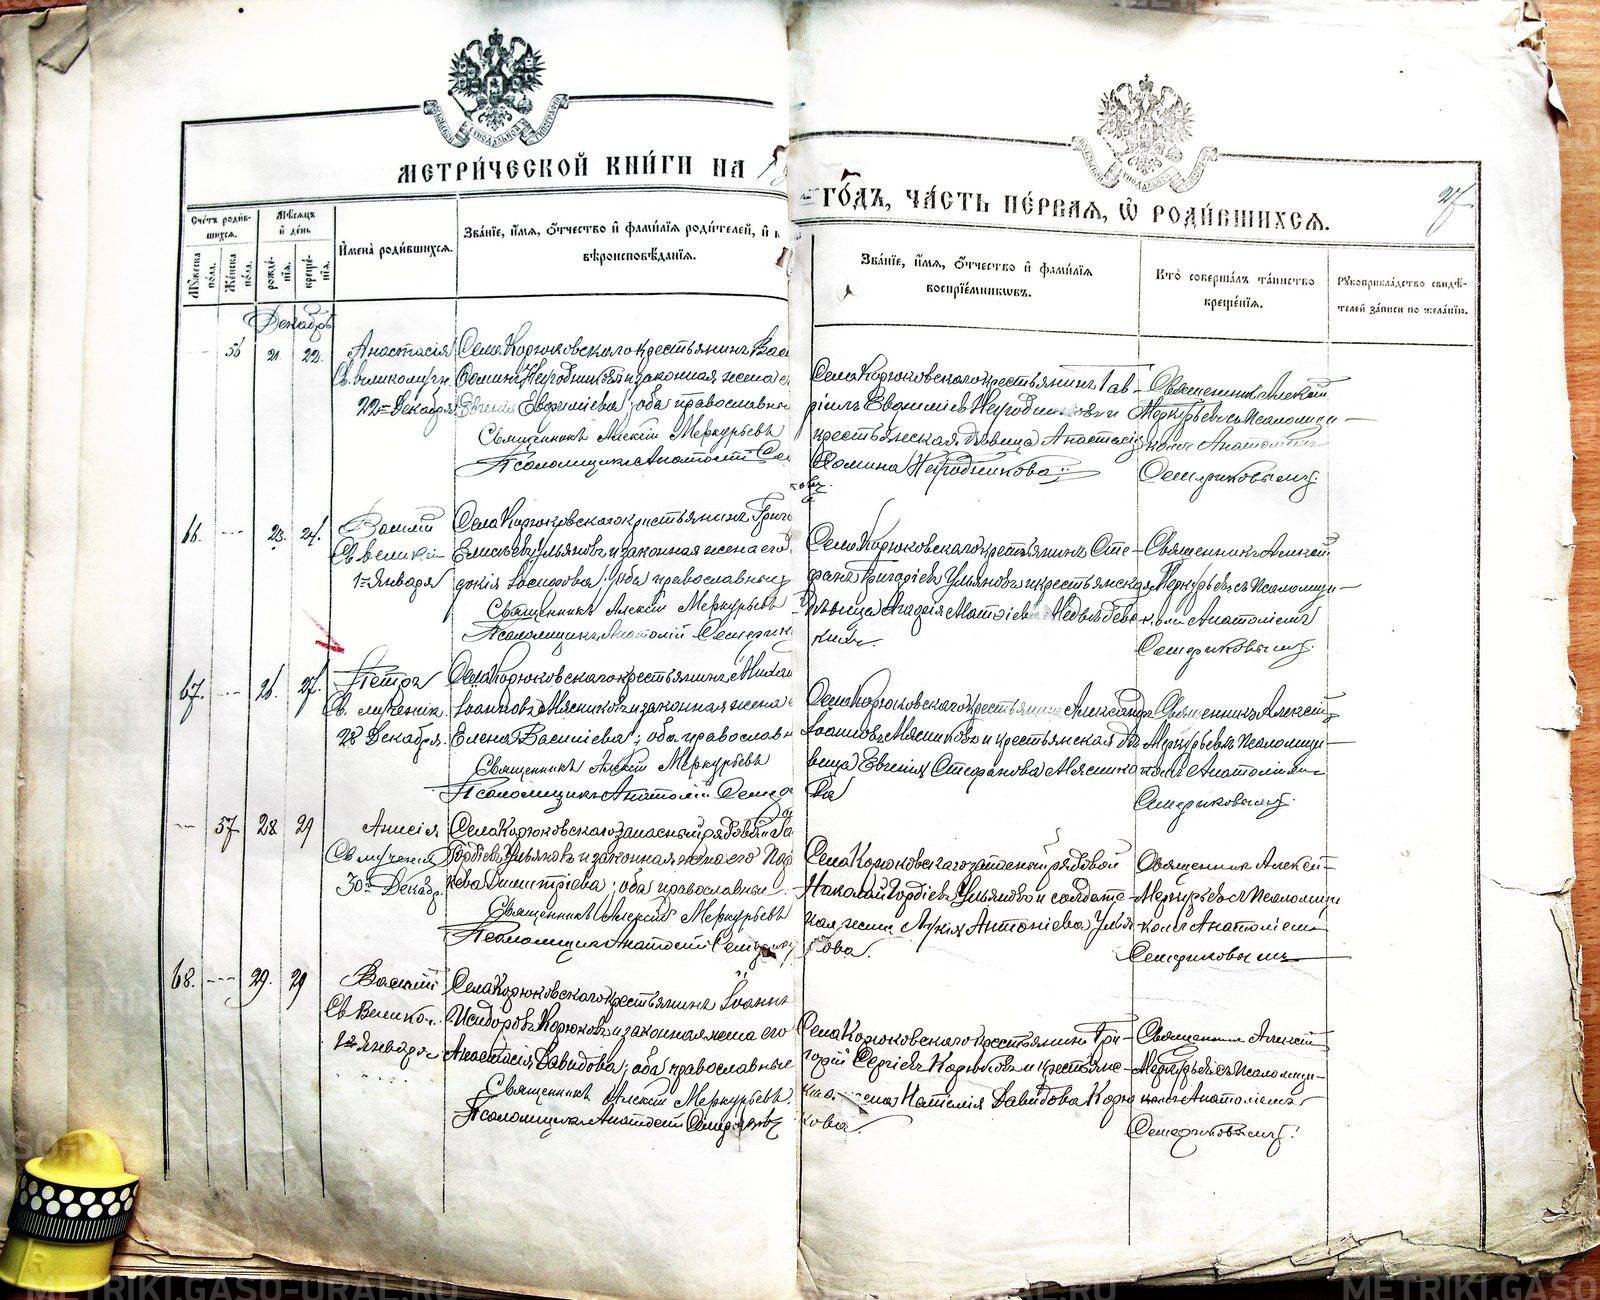 МЕТРИ́ЧЕСКОЙ КНИ́ГИ НА
ГО́ДЪ, ЧА́СТЬ ПЕ́РВАЯ, Ѿ РОДИ́ВШИХСЯ.
Сче́тъ роди́в-
шихся.
Мѣ́сяцъ
и҆ де́нь
Му́жеска
по́ла.
Же́нска
по́ла.
рожде́-
нїя.
креще́-
нїя.
И҆мена̀ роди́вшихся.
Зва́нїе, и҆́мя, ѻ҆́тчество и҆ фами́лїя роди́телей, и҆
вѣроисповѣ́данїя.
Зва́нїе, и҆́мя, ѻ҆́тчество и҆ фами́лїя
воспрїе́мникωвъ.
Кто̀ соверша́лъ та́инство
креще́нїя.
Рукоприкла́дство свидѣ́-
телей за́писи по жела́нїю.
Декабрь
56 21. 22. Анастасія
Св. великомучен.
22го Декабря
Села Корюковскаго крестьянинъ
Ѳоминъ и законная жена
Евгенія Евфиміева; оба православные
Священникъ Алексій Меркурьевъ
Псаломщикъ Анатолій
Села Корюковскаго крестьянинъ Гав-
ріилъ Евфиміевъ и
крестьянская дѣвица Анастасія
Ѳомина
Священникъ Алексій
Меркурьевъ съ Псаломщи-
комъ Анатоліемъ
Семериковымъ.
66. 23. 24. Василій
Св. великій
1го Января
Села Корюковскаго крестьянинъ
Елисѣевъ Ульяновъ и законная жена его
докія оба православные
Священникъ Алексій Меркурьевъ
Псаломщикъ Анатолій
Села Корюковскаго крестьянинъ Сте-
фанъ Григоріевъ Ульяновъ и крестьянская
дѣвица Матѳіева
Священникъ Алексій
Меркурьевъ съ Псаломщи-
комъ Анатоліемъ
Семериковымъ.
67. 26. 27. Петръ
Св. мученик.
28 Декабря.
Села Корюковскаго крестьянинъ
Іоанновъ Мясниковъ и законная жена
Елена Василіева; оба православн
Священникъ Алексій Меркурьевъ
Псаломщикъ Анатолій
Села Корюковскаго крестьянинъ Александръ
Іоанновъ Мясниковъ и крестьянская дѣ-
вица Евгенія Стефанова Мяснико-
ва
Священникъ Алексій
Меркурьевъ съ Псаломщи-
комъ Анатоліем-
Семериковымъ.
57 28 29 Анисія
Св. мучениц
30го Декабр.
Села Корюковскаго запасный рядовой
Гордіевъ Ульяновъ и законная жена его
Димитріева; оба православные
Священникъ Алексій Меркурьевъ
Псаломщикъ Анатолій
Села Корюковскаго запасный рядовой
Николай Гордіевъ Ульяновъ и солдатс-
кая жена Лукія Антоніева Улья-
нова.
Священникъ Алексій
Меркурьевъ съ Псаломщи-
комъ Анатоліем-
Семериковымъ
68. 29. 29 Василій
Св. Велико.
1го Января
Села Корюковскаго крестьянинъ Іоаннъ
Исидоровъ Корюковъ и законная жена его
Анастасія Давидова; оба православные
Священникъ Алексій Меркурьевъ.
Псаломщикъ Анатолій Семериковъ
Села Корюковскаго крестьянинъ Гри-
горій Сергіевъ Корюковъ и крестьянс-
кая жена Наталія Давидова Корю-
кова.
Священникъ Алексій
Меркурьевъ съ Псаломщи-
комъ Анатоліемъ
Семериковымъ.
METRIKI.GASO-URAL.RU
METRIKI.GASO